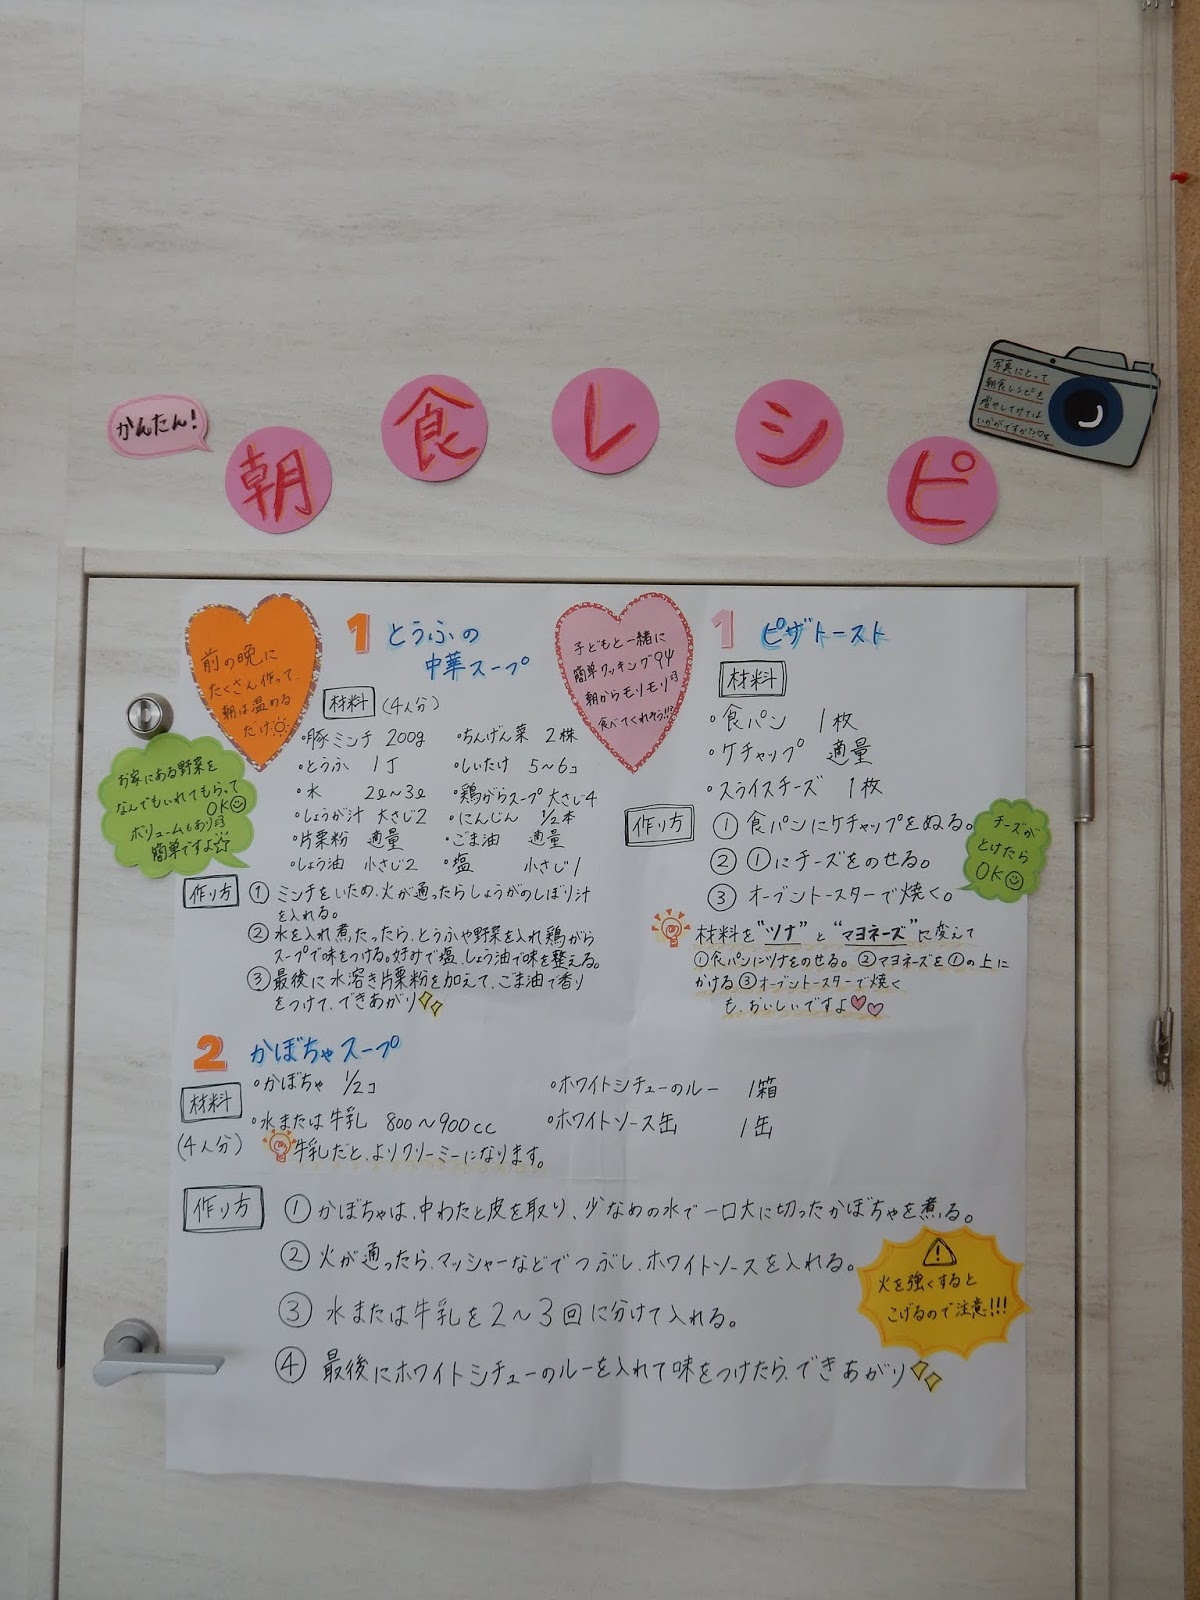 かんたん!
朝食レシピ
写真にとって
朝食レシピを
増やしてみては
いかがですか?
前の晩に
たくさん作って、
朝は温める
だけ
1 とうふの
中華スープ
材料 (4人分)
・豚ミンチ 200g ・ちんげん菜 2株
・とうふ 1丁 ・しいたけ 5〜6コ
・水 2ℓ〜3ℓ ・鶏がらスープ 大さじ4
・しょうが汁 大さじ2 ・にんじん 1/2本
・片栗粉 適量 ・ごま油 適量
・しょう油 小さじ2 ・塩 小さじ1
お家にある野菜を
なんでもいれてもらって
OK
ボリュームもあり
簡単ですよ☆
作り方 ① ミンチをいため、火が通ったらしょうがのしぼり汁
を入れる。
② 水を入れ煮たったら、とうふや野菜を入れ鶏がら
スープで味をつける。好みで塩、しょう油で味を整える。
③ 最後に水溶き片栗粉を加えて、ごま油で香り
をつけて、できあがり
子どもと一緒に
簡単クッキング
朝からモリモリ
食べてくれそう!!
1 ピザトースト
材料
・食パン 1枚
・ケチャップ 適量
・スライスチーズ 1枚
作り方 ① 食パンにケチャップをぬる。
② ①にチーズをのせる。
③ オーブントースターで焼く。
チーズが
とけたら
OK
材料を"ツナ"と"マヨネーズ"に変えて
①食パンにツナをのせる。②マヨネーズを①の上に
かける③オーブントースターで焼く
も、おいしいですよ
2 かぼちゃスープ
材料
(4人分)
・かぼちゃ 1/2コ ・ホワイトシチューのルー 1箱
・水または牛乳 800〜900cc ・ホワイトソース缶 1缶
牛乳だと、よりクリーミーになります。
作り方 ① かぼちゃは、中わたと皮を取り、少なめの水で一口大に切ったかぼちゃを煮る。
② 火が通ったら、マッシャーなどでつぶし、ホワイトソースを入れる。
③ 水または牛乳を2〜3回に分けて入れる。
④ 最後にホワイトシチューのルーを入れて味をつけたら、できあがり
火を強くすると
こげるので注意!!!